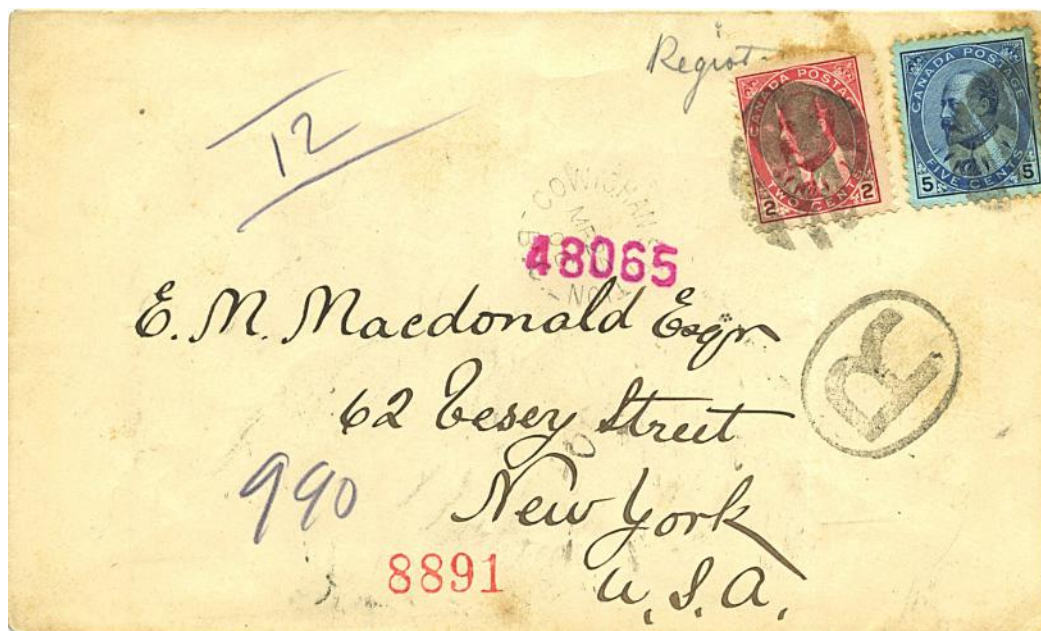 Regist
12
CANADA POSTAGE
2 TWO CENTS 2
CANADA POSTAGE
5 FIVE CENTS 5
COWICHAN
B.C.
48065
E. M. Macdonald Esqr
62 Vesey Street
New York
U.S.A.
R
990
8891